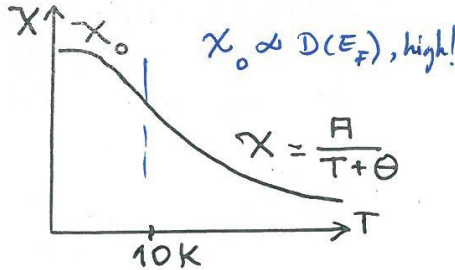 χ
χ₀
χ₀ ∝ D(E_F), high!
χ = A / (T + Θ)
T
10K